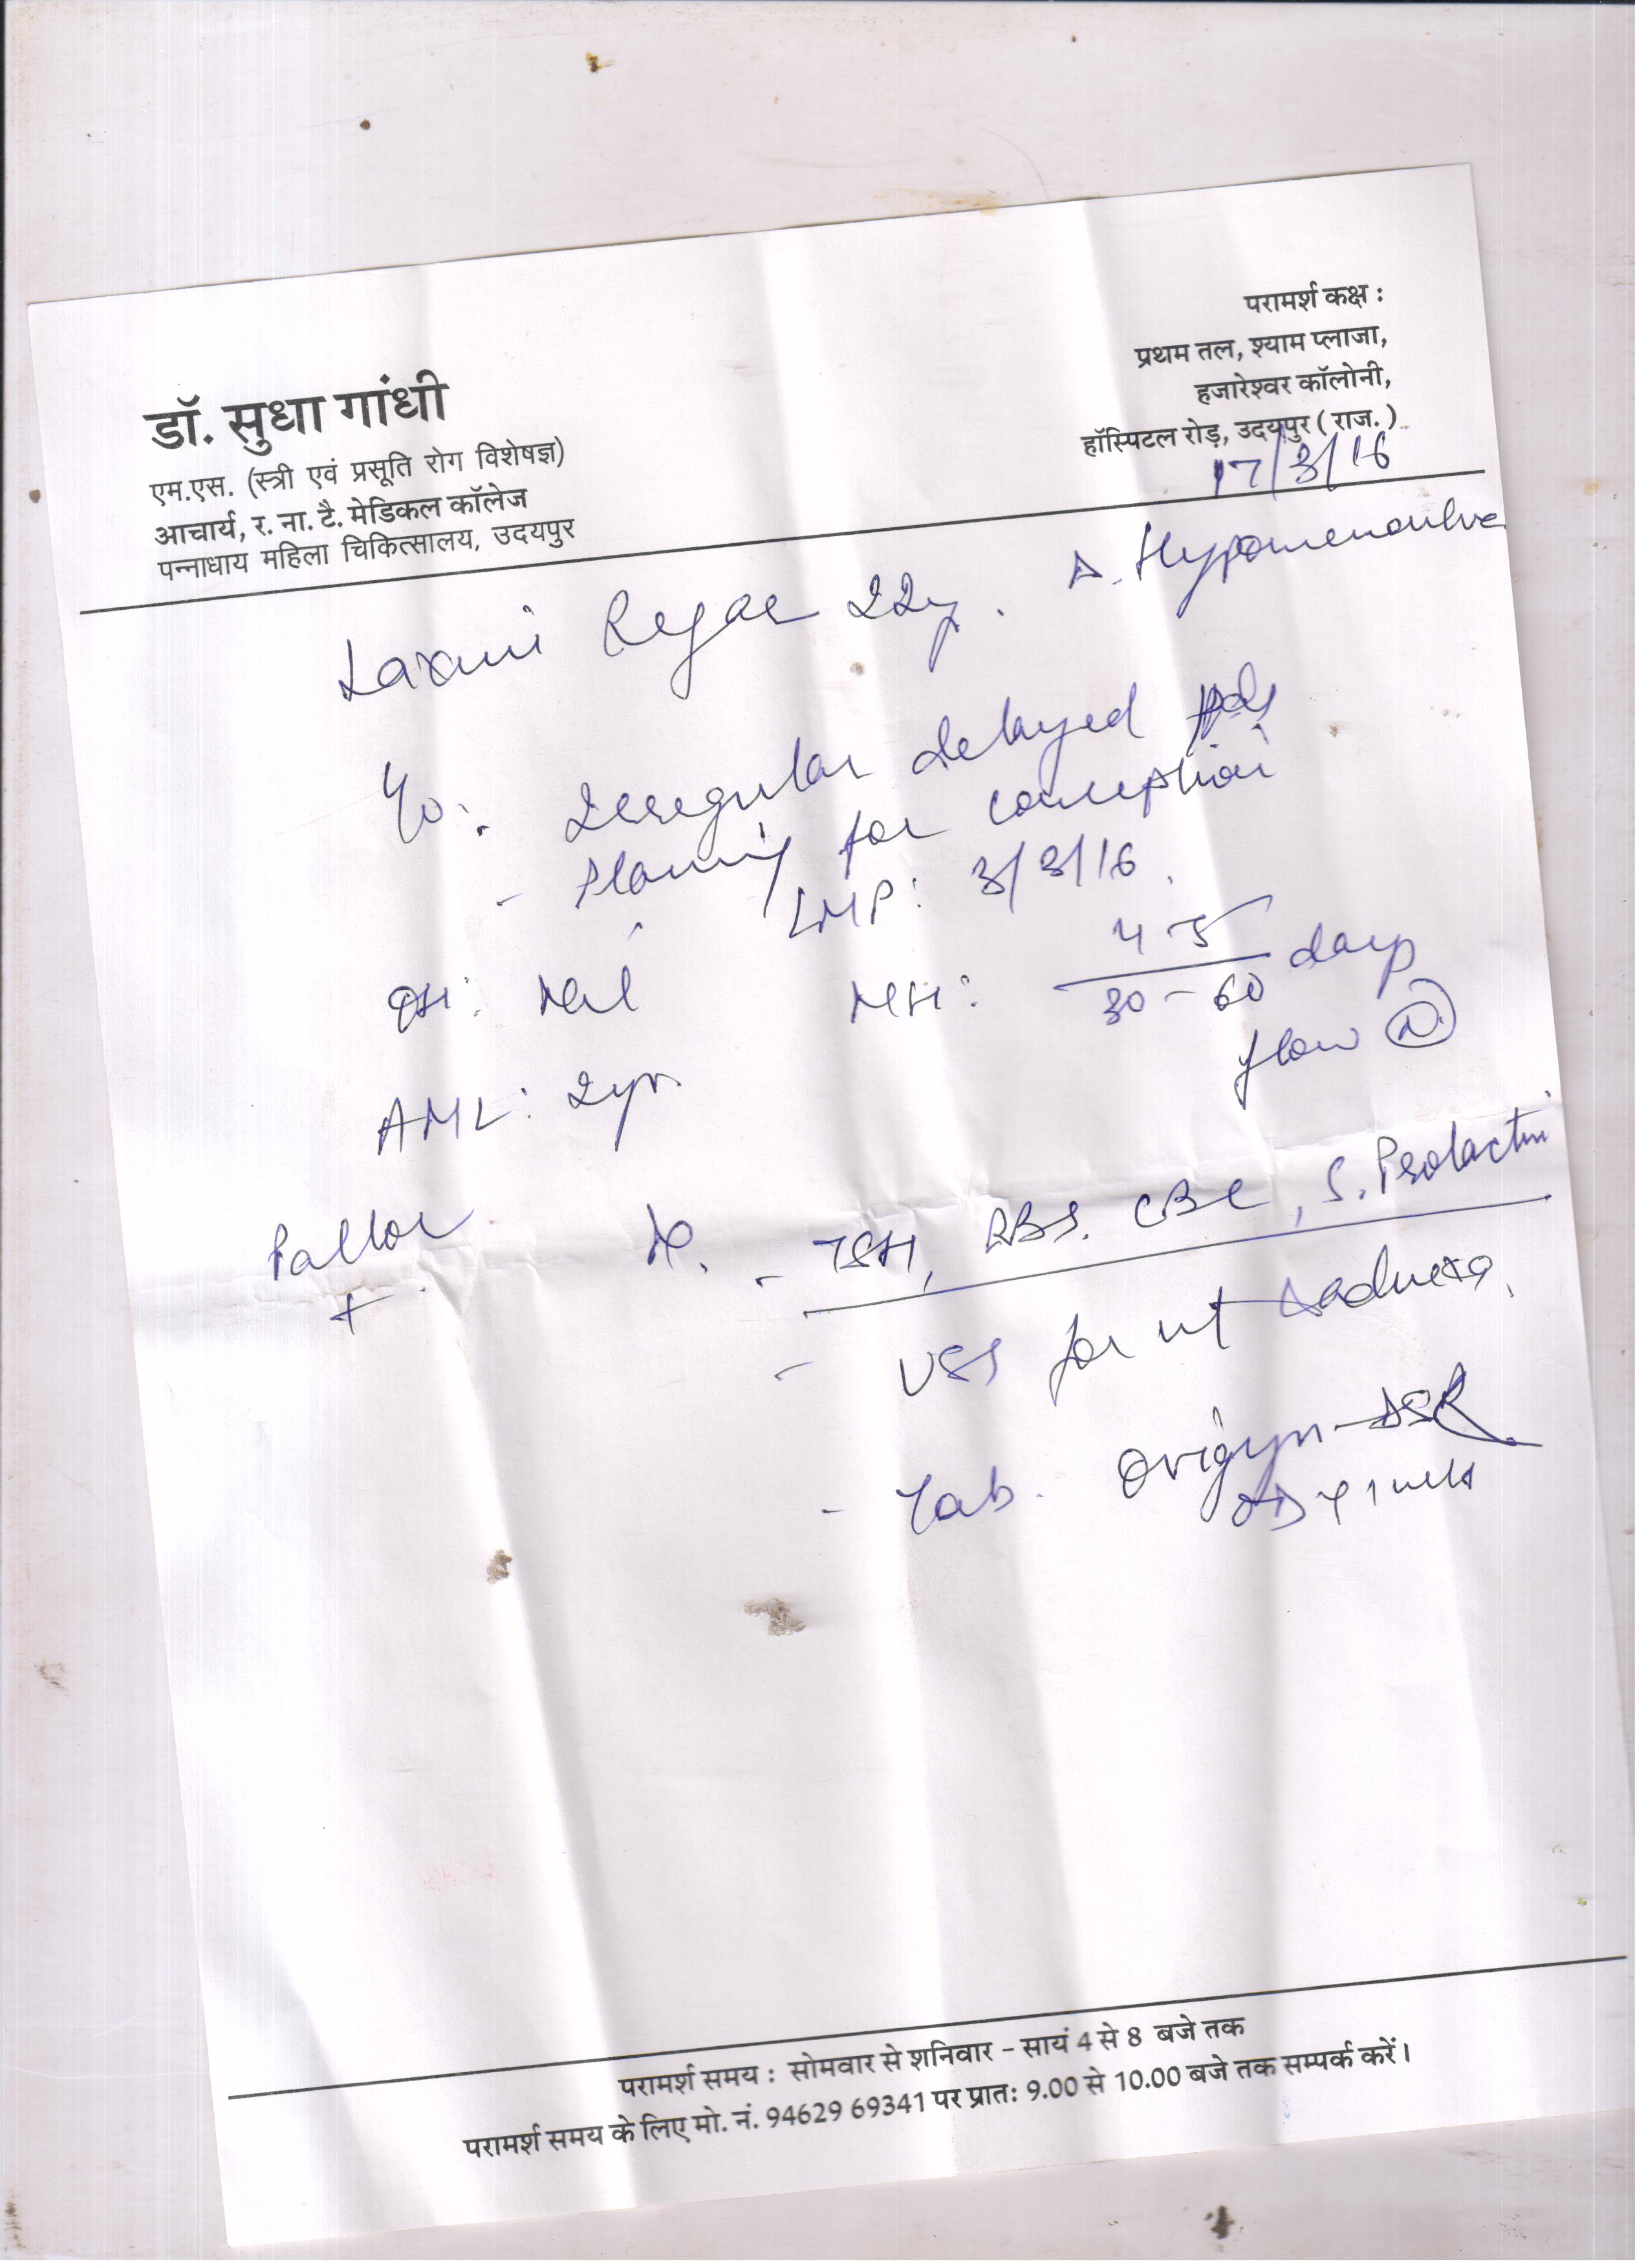 परामर्श कक्ष :
प्रथम तल, श्याम प्लाजा,
हजारेश्वर कॉलोनी,
हॉस्पिटल रोड़, उदयपुर ( राज. )
डॉ. सुधा गांधी
एम.एस. (स्त्री एवं प्रसूति रोग विशेषज्ञ)
आचार्य, र. ना. टै. मेडिकल कॉलेज
पन्नाधाय महिला चिकित्सालय, उदयपुर
17/3/16
Laxmi Regar 22y.
Irregular delayed
- Planning for conception
LMP: 3/3/16
OH: Nil
MH: 4-5
30-60 days
flow (N)
AML: 2yr.
Pallor
+
- TSH, RBS. CBC, S. Prolactin
- USS for ut
- Tab. Ovigyn-DSR
OD
परामर्श समय : सोमवार से शनिवार - सायं 4 से 8 बजे तक
परामर्श समय के लिए मो. नं. 94629 69341 पर प्रातः 9.00 से 10.00 बजे तक सम्पर्क करें।